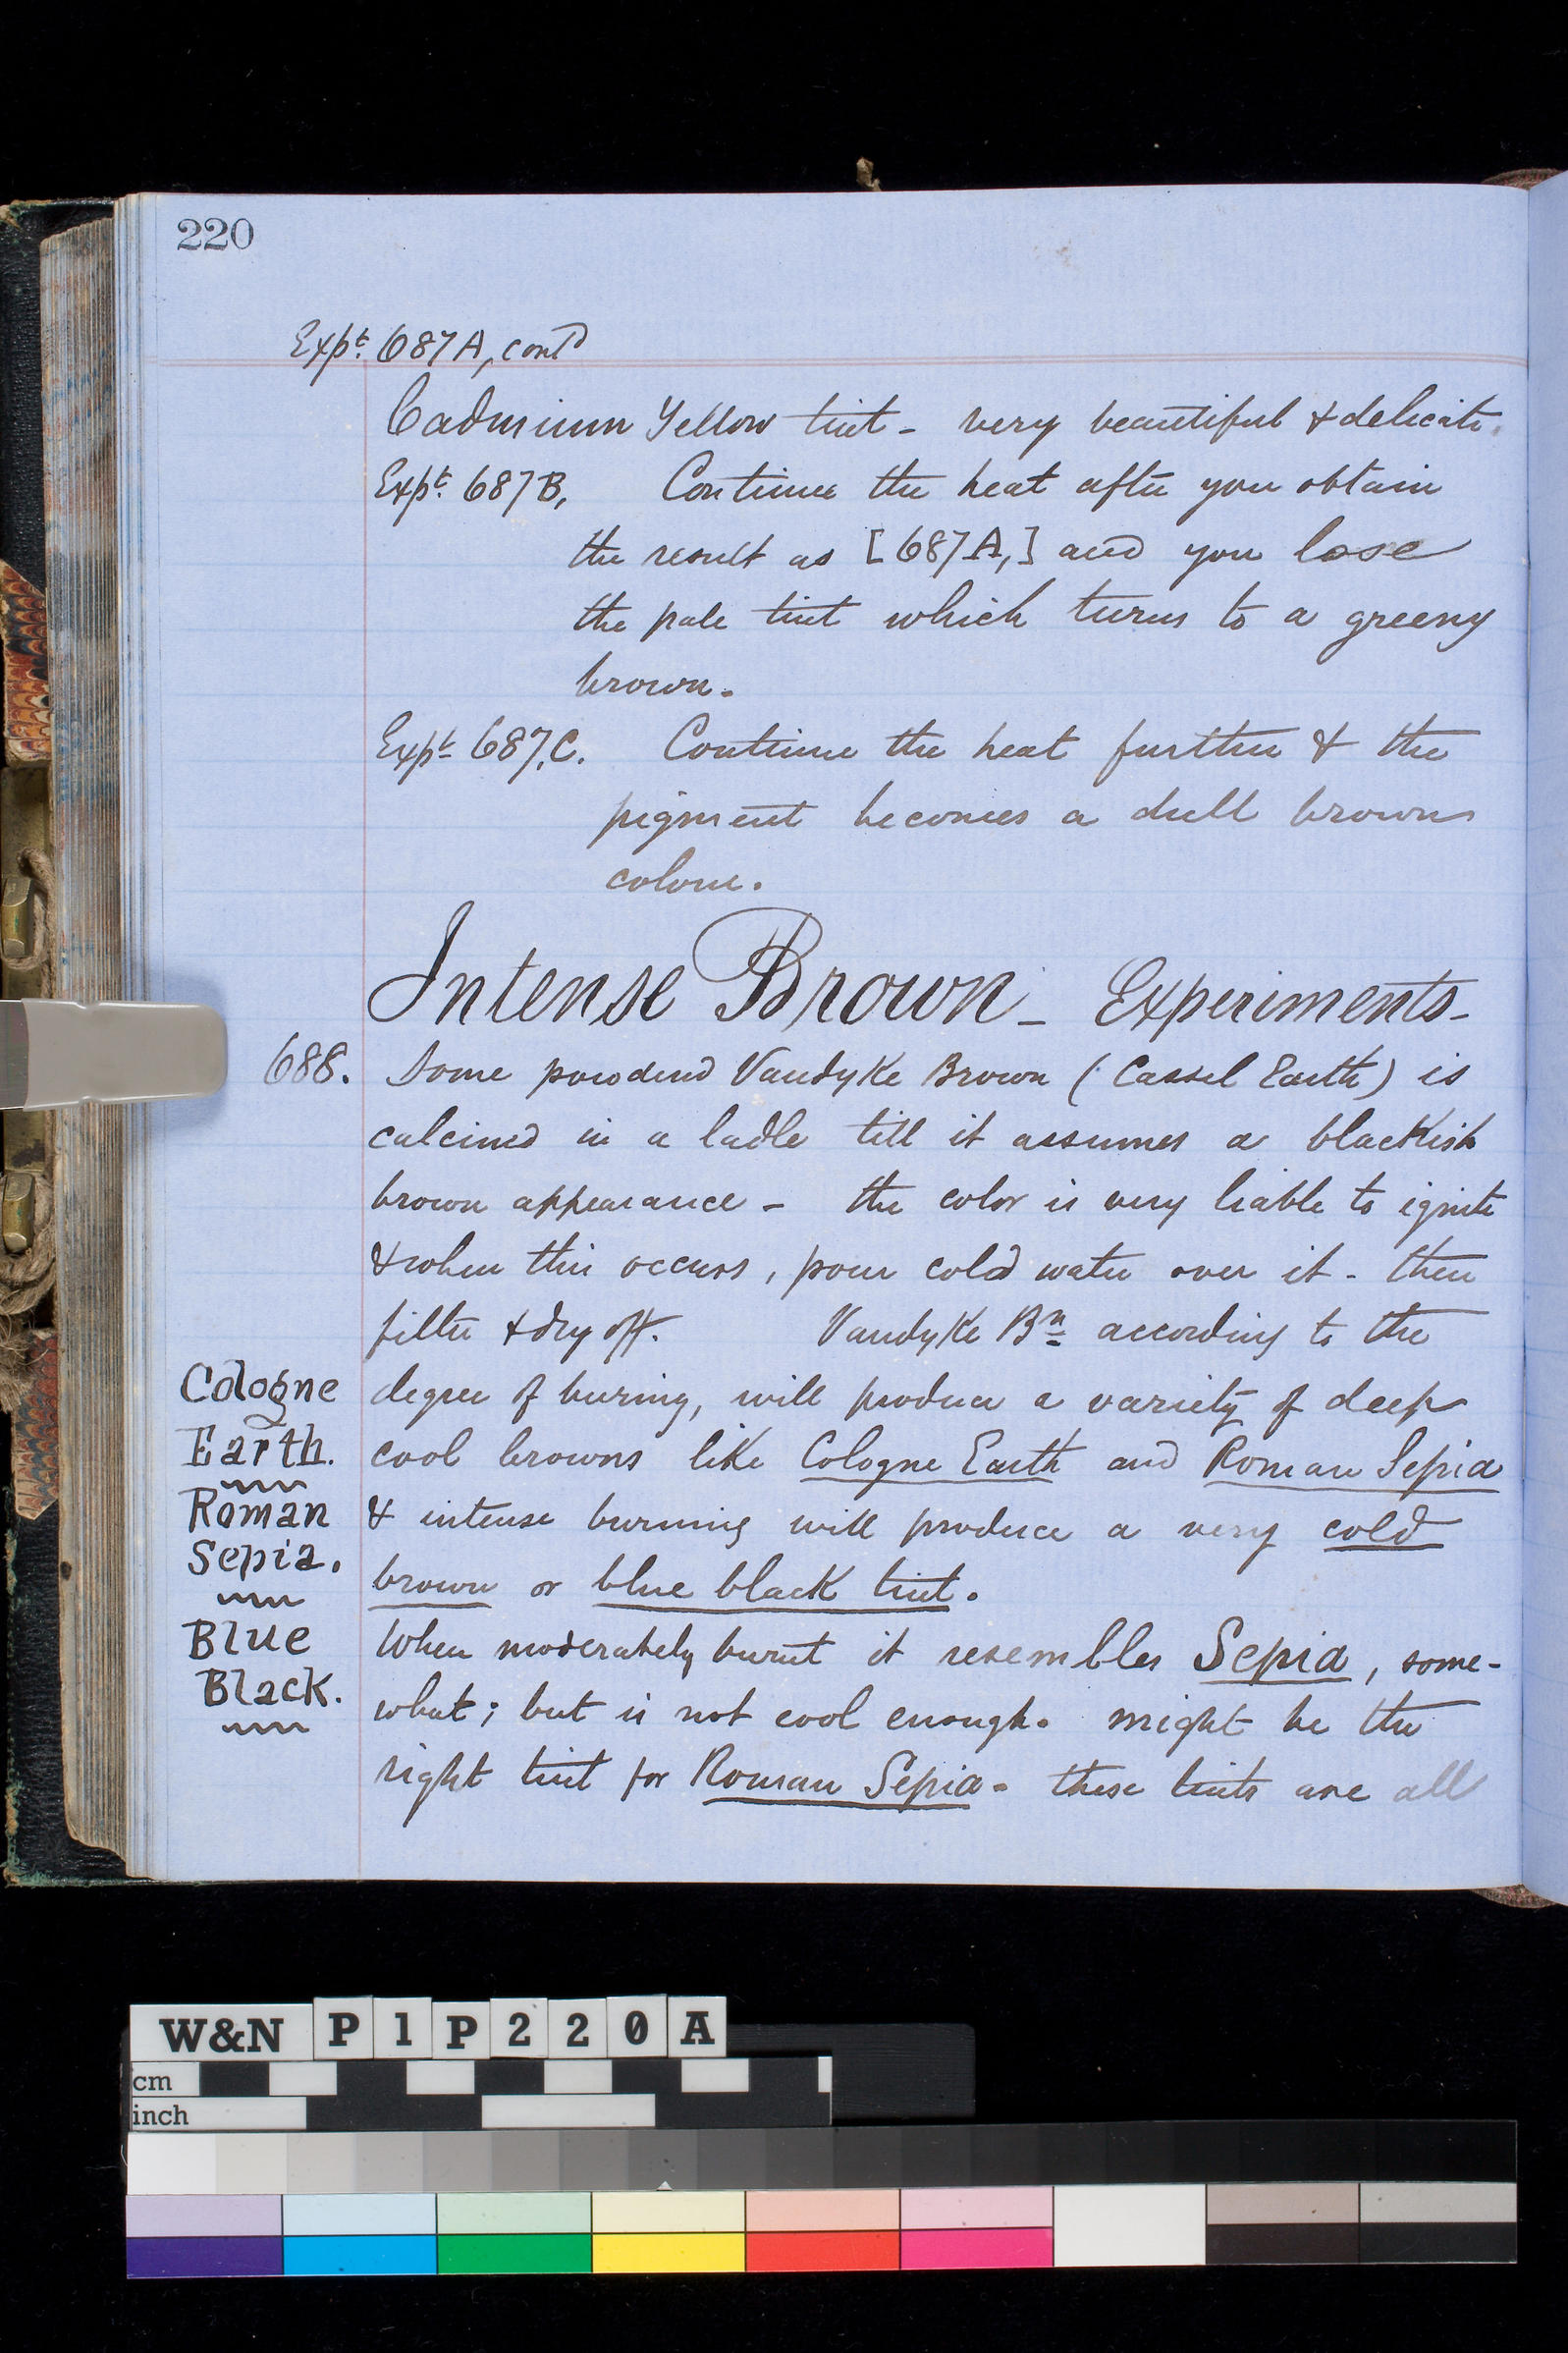 220
Expt. 687A, contd
Cadmium Yellow tint - very beautiful & delicate.
Expt. 687B, Continue the heat after you obtain
the result as [687A,] and you lose
the pale tint which turns to a greeny
brown.
Expt 687.C. Continue the heat further & the
pigment becomes a dull brown
colour.
Intense Brown - Experiments -
688. Some powdered Vandyke Brown (Cassel Earth) is
calcined in a ladle till it assumes a blackish
brown appearance - the color is very liable to ignite
& when this occurs, pour cold water over it - then
filter & dry off. Vandyke Bn according to the
Cologne degree of burning, will produce a variety of deep
Earth. cool browns like Cologne Earth and Roman Sepia
Roman & intense burning will produce a very cold
Sepia. brown or blue black tint.
Blue When moderately burnt it resembles Sepia, some-
Black. what; but is not cool enough. might be the
right tint for Roman Sepia - these tints are all
W&N P1P220A
cm
inch